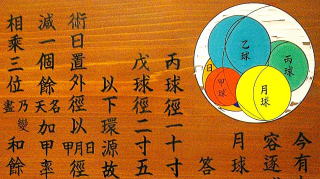 乙球
丙球
日
甲球
月球
今有
容逐
月球
答
丙球徑一十寸
戊球徑二寸五
以下環源故
術日置外徑以日月甲徑
減一個餘名天加甲率
相乘三位乃變盡和餘